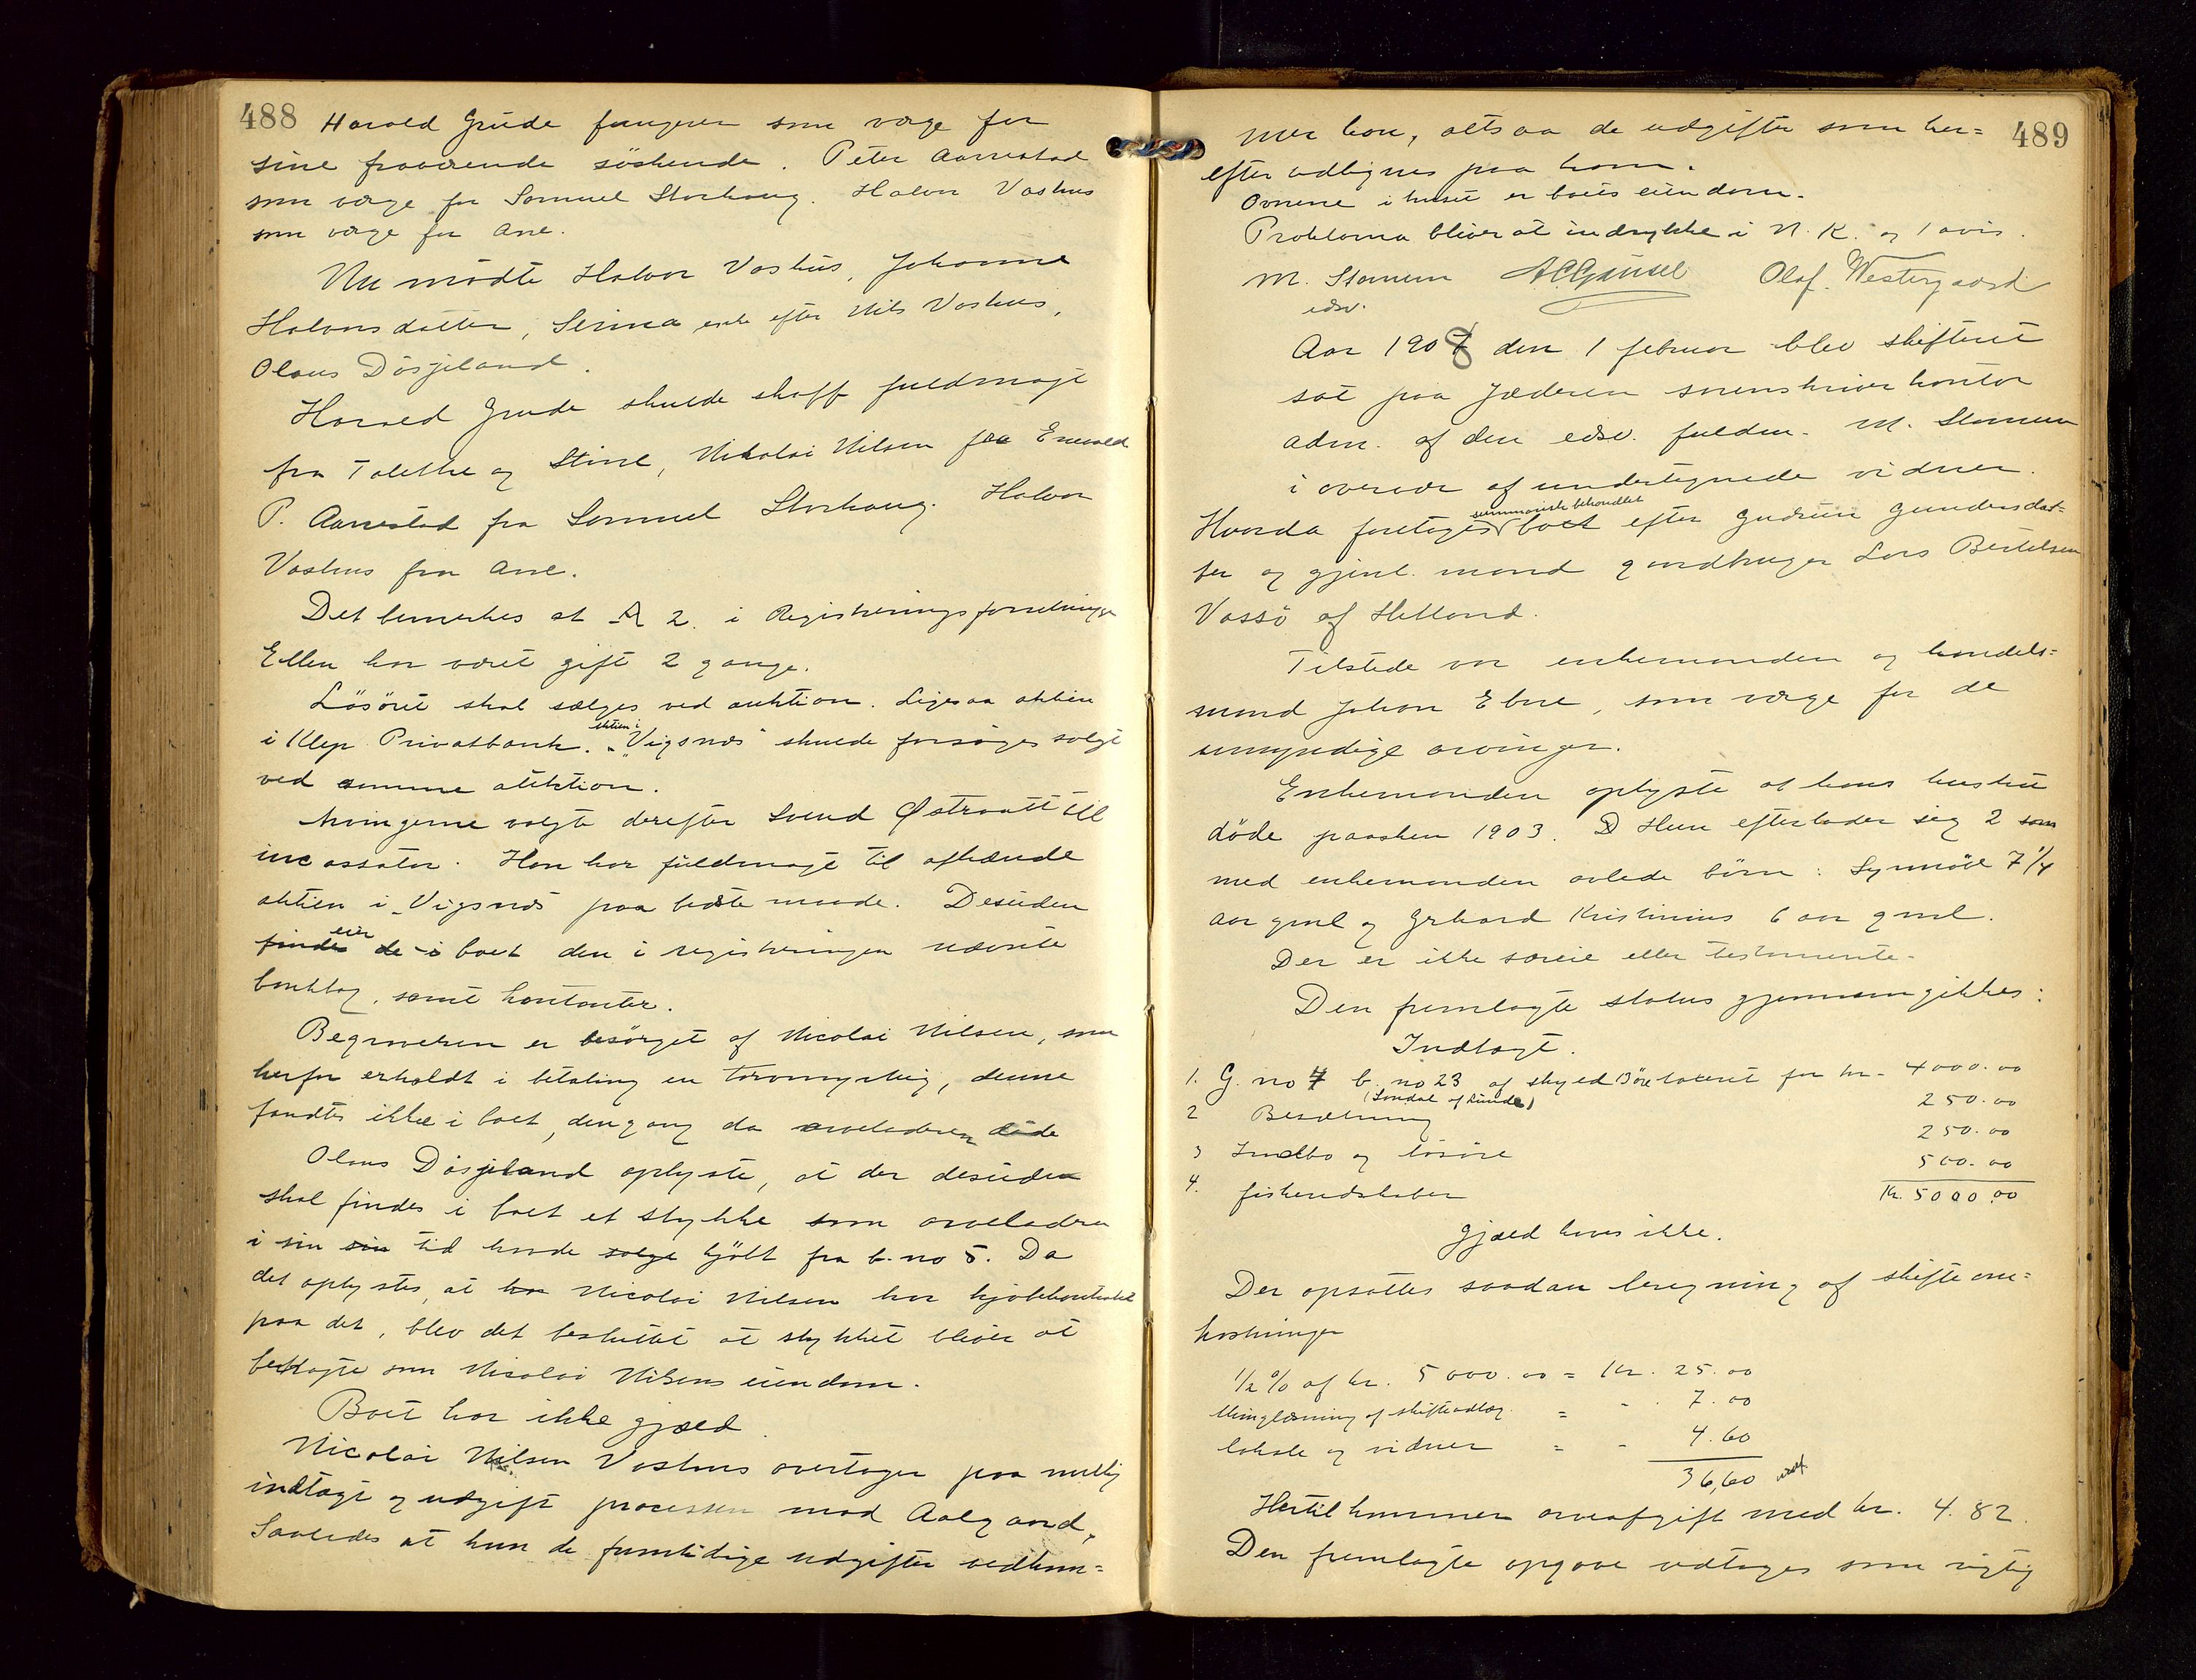 488
Harald Grude fungerer som værge for
sine fraværende söskende. Peter Aarrestad
som værge for Samuel Storhaug. Halvor Vashus
som værge for Ane.
Nu mödte Halvor Vashus, Johanne
Halvorsdatter, Serina enke efter Nils Vashus,
Olaus Dösjeland.
Harald Grude skulde skaffe fuldmagt
fra Talette og Stine, Nikolai Nilsen fra Enevald
P. Aarrestad fra Samuel Storhaug. Halvor
Vashus fra Ane.
Det bemerkes at A 2. i Registreringsforretningen
Ellen har været gift 2 gange.
Lösöret skal sælges ved auktion. Ligesaa aktien
i Klep Privatbank. aktien i "Vigsnæs" skulde forsöges solgt
ved samme auktion.
Arvingerne valgte derefter Svend Østraatt til
incassator. Han har fuldmagt til afhænde
aktien i "Vigsnæs" paa bedste maade. Desuden
finde eier de i boet den i registreringen nævnte
banklag, samt kontanter.
Begravelsen er besörget af Nicolai Nilsen, som
herfor erholdt i betaling en torvmyrteig, denne
fandtes ikke i boet, dengang da arveladeren döde
Olaus Dösjeland oplyste, at der desuden
skal findes i boet et stykke som arveladeren
i sin sin tid havde solgt kjöbt fra b. no 5. Da
det oplystes, at han Nicolai Nilsen har kjöbekontrakt
paa det, blev det besluttet at stykket bliver at
betragte som Nicolai Nilsens eiendom.
Boet har ikke gjæld.
Nicolai Nilsen Vashus overtager paa mulig
indtægt og udgift processen mod Aalgaard,
Saaledes at kun de fremtidige udgifter vedkom=
489
mer ham, altsaa de udgifter som her=
efter udlignes paa ham.
Ovnene i huset er boets eiendom.
Proklama bliver at indrykke i N. K. og 1 avis.
M. Stamnen
edsv.
Olaf Westergaard
Aar 1908 den 1 februar blev skifteret
sat paa Jæderen sorenskriver kontor
adm. af den edsv. fuldm. M. Stamnen
i overvær af undertegnede vidner.
Hvorda foretoges summarisk behandlet boet efter Gudrun Gundersdat=
ter og gjenl. mand gaardbruger Lars Bertelsen
Vassö af Hetland.
Tilstede var enkemanden og handels=
mand Johan Ebne, som værge for de
umyndige arvinger.
Enkemanden oplyste at hans hustru
döde paasken 1903. D Hun efterlader sig 2 som
med enkemanden avlede börn: Synnöve 7 1/4
aar gml og Gerhard Kristinius 6 aar gml.
Der er ikke særeie eller testamente.
Den fremlagte status gjennemgikkes:
Indtægt.
1. G. no 4 b. no 23 af skyld 13 öre taxeret for kr. 4000.00
2 Besætning 250.00
3 Indbo og lösöre 250.00
4. fiskeredskaber 500.00
Kr. 5000.00
Gjæld haves ikke.
Der opsattes saadan beregning af skifteom=
kostninger
1/2 % af kr. 5000.00 = Kr. 25.00
thinglæsning af skifteudlæg = - 7.00
lokale og vidner = - 4.60
36,60
Hertil kommer arveafgift med kr. 4.82.
Den fremlagte opgave vedtoges som rigtig